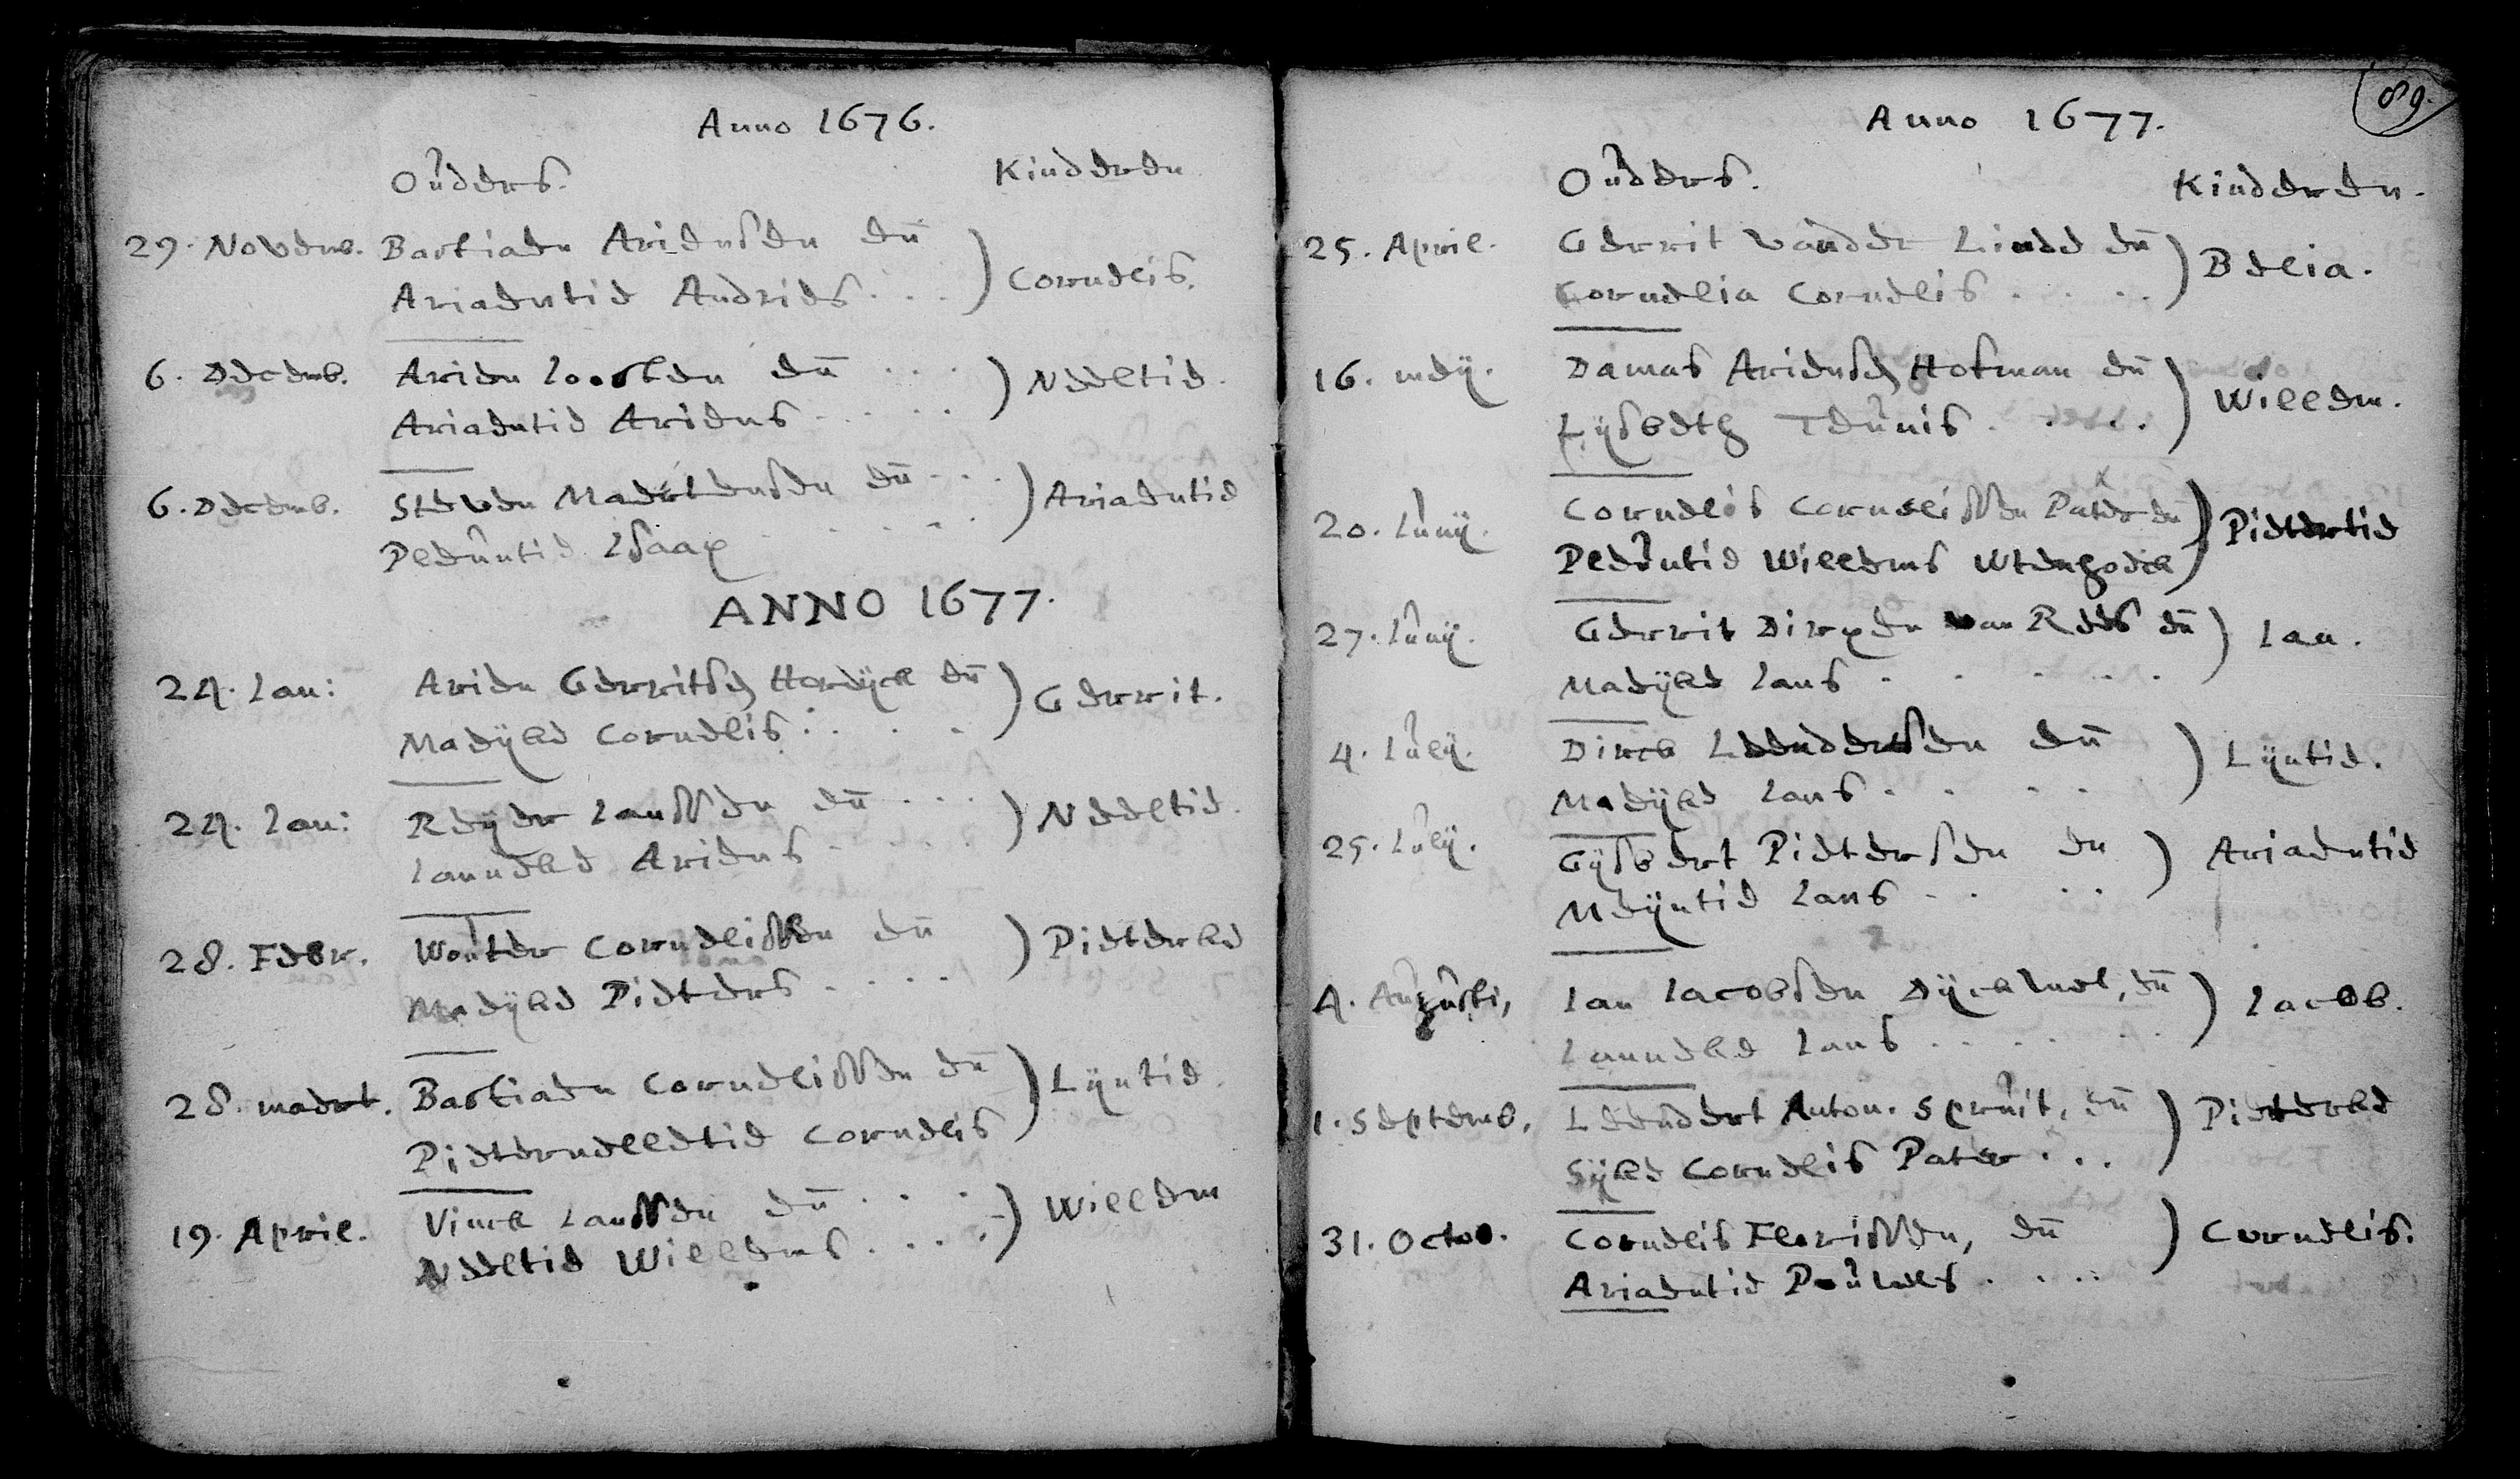 Anno 1676.
Ouders. Kinderen
29. Novemb. Bastiaen Ariensen en
Ariaentie Andries . . . ) Cornelis.
6. Decemb. Arien Joosten en . . .
Ariaentie Ariens . . . . ) Neeltie.
6. Decemb. Steven Maertensen en . . .
Pleuntie Isaax . . . . ) Ariaentie
ANNO 1677.
24. Jan: Arien Gerritsen Hordijck en
Maeijke Cornelis . . . ) Gerrit.
24. Jan: Reijer Janssen en . . .
Janneke Ariens . . . . ) Neeltie.
28. Febr. Wouter Cornelissen en
Maeijke Pieters . . . . ) Pieterke
28. maert. Bastiaen Cornelissen en
Pieternelletie Cornelis ) Lijntie.
19. April. Vinck Janssen en . . .
Neeltie Willems . . . . ) Willem
89.
Anno 1677.
Ouders. Kinderen.
25. April. Gerrit vander Linde en
Cornelia Cornelis . . . . ) Belia.
16. meij. Damas Ariensen Hofman en
Lijsbeth Teunis . . . . ) Willem.
20. Junij. Cornelis Cornelissen Pater en
Pleuntie Willems Wtenhoeck ) Pietertie
27. Junij. Gerrit Dirxen van Rees en
Maeijke Jans . . . . . ) Jan.
4. Julij. Dirck Leendertsen en
Maeijke Jans . . . . ) Lijntie.
25. Julij. Gijsbert Pietersen en
Meijntie Jans . . . . ) Ariaentie
4. Augusti, Jan Jacobsen en
Janneke Jans . . . . . ) Jacob.
1. Septemb. Leendert Anton. Spruit, en
Sijke Cornelis Pater . . . ) Pieterke
31. Octob. Cornelis Florissen, en
Ariaentie Pouwels . . . . ) Cornelis.